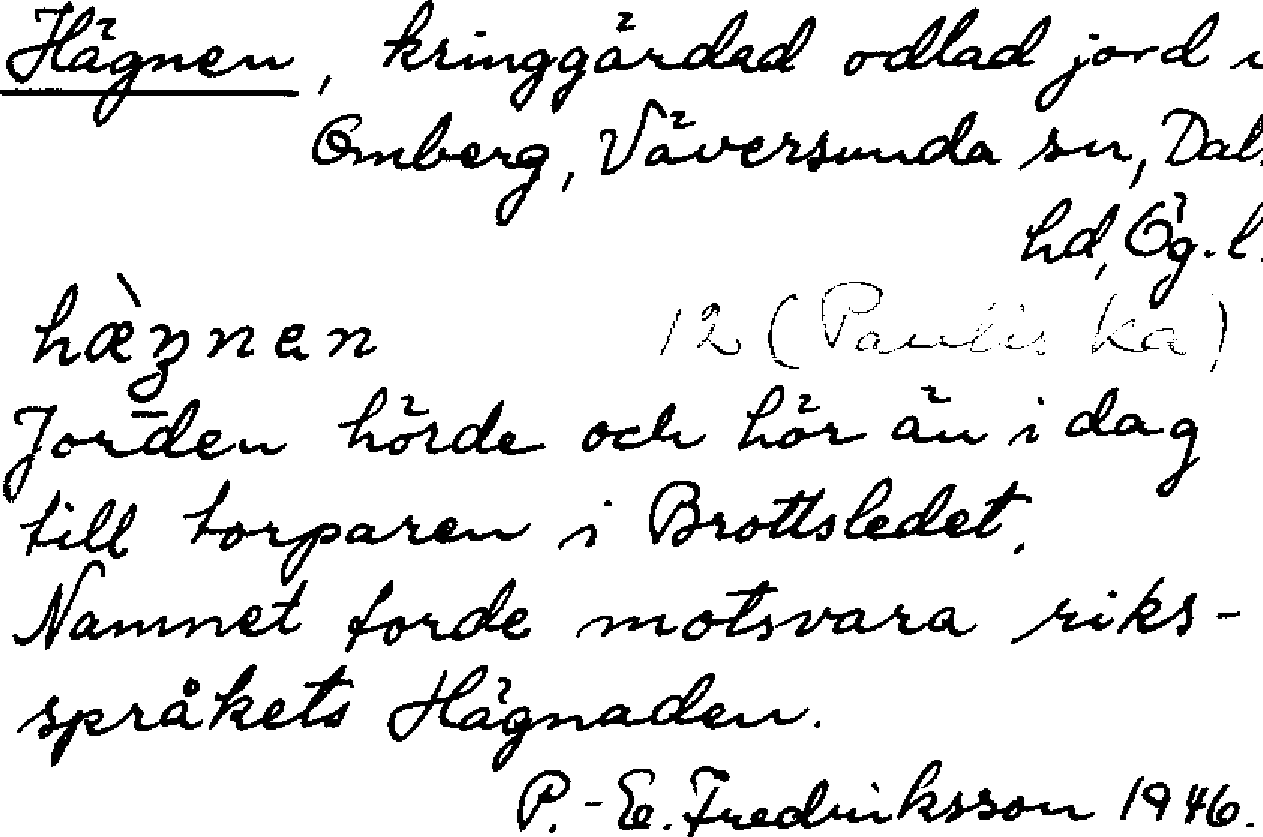 Hägnen, kringgärdad odlad jord i
Omberg, Väversunda sn, Dals
hd, Ög. l.
hæ̀ʒnen 12 (Pauliska)
Jorden hörde och hör än i dag
till torparen i Brottsledet.
Namnet torde motsvara riks-
språkets Hägnaden.
P.-E. Fredriksson 1946.